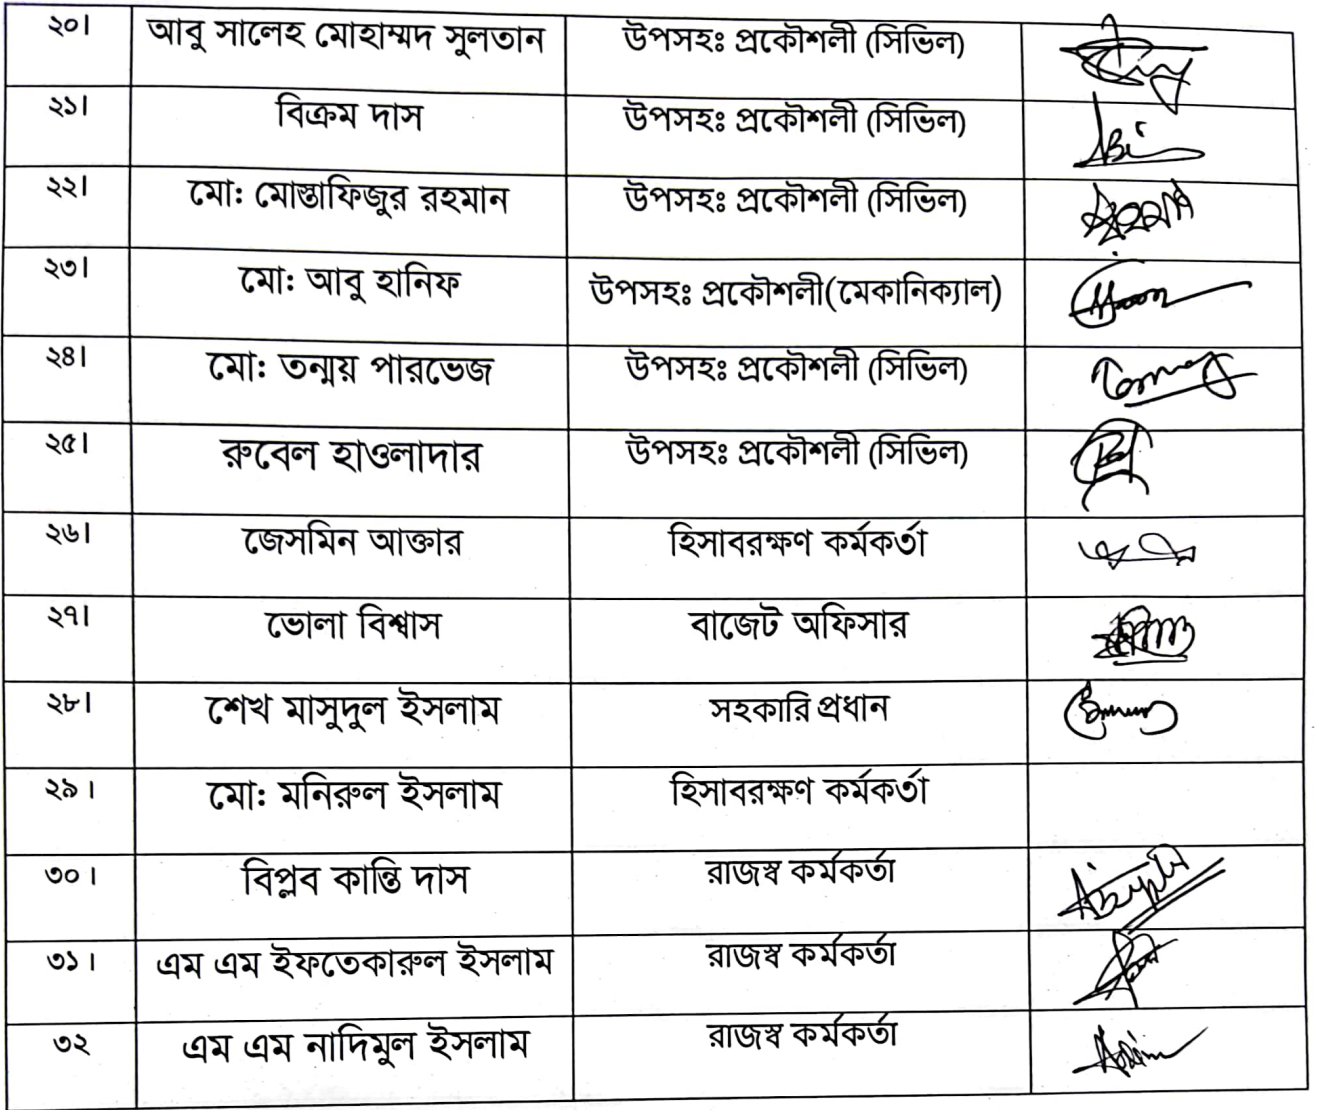 ২০। আবু সালেহ মোহাম্মদ সুলতান উপসহঃ প্রকৌশলী (সিভিল)
২১। বিক্রম দাস উপসহঃ প্রকৌশলী (সিভিল)
২২। মো: মোস্তাফিজুর রহমান উপসহঃ প্রকৌশলী (সিভিল)
২৩। মো: আবু হানিফ উপসহঃ প্রকৌশলী(মেকানিক্যাল)
২৪। মো: তন্ময় পারভেজ উপসহঃ প্রকৌশলী (সিভিল)
২৫। রুবেল হাওলাদার উপসহঃ প্রকৌশলী (সিভিল)
২৬। জেসমিন আক্তার হিসাবরক্ষণ কর্মকর্তা
২৭। ভোলা বিশ্বাস বাজেট অফিসার
২৮। শেখ মাসুদুল ইসলাম সহকারি প্রধান
২৯। মো: মনিরুল ইসলাম হিসাবরক্ষণ কর্মকর্তা
৩০। বিপ্লব কান্তি দাস রাজস্ব কর্মকর্তা
৩১। এম এম ইফতেকারুল ইসলাম রাজস্ব কর্মকর্তা
৩২ এম এম নাদিমুল ইসলাম রাজস্ব কর্মকর্তা